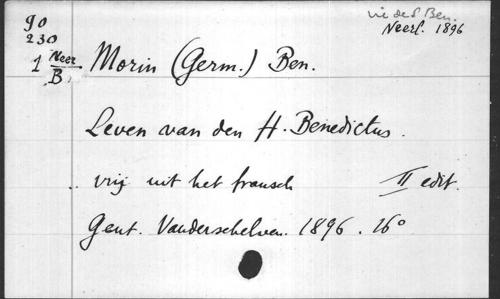 vie de S Ben.
90 Neerl. 1896
230
1 Neer B. Morin (Germ.) Ben.
Leven van den H. Benedictus.
vrij uit het fransch II edit.
Gent. Vanderschelven. 1896. 16°